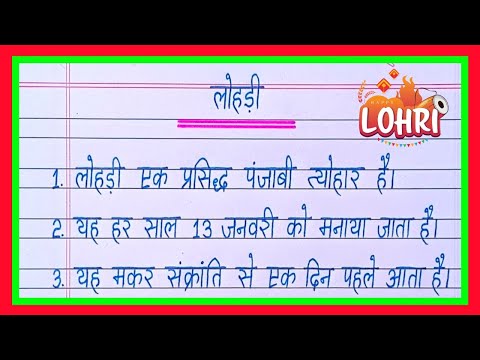 लोहड़ी
HAPPY
LOHRI
1. लोहड़ी एक प्रसिद्ध पंजाबी त्योहार है।
2. यह हर साल 13 जनवरी को मनाया जाता है।
3. यह मकर संक्रांति से एक दिन पहले आता है।